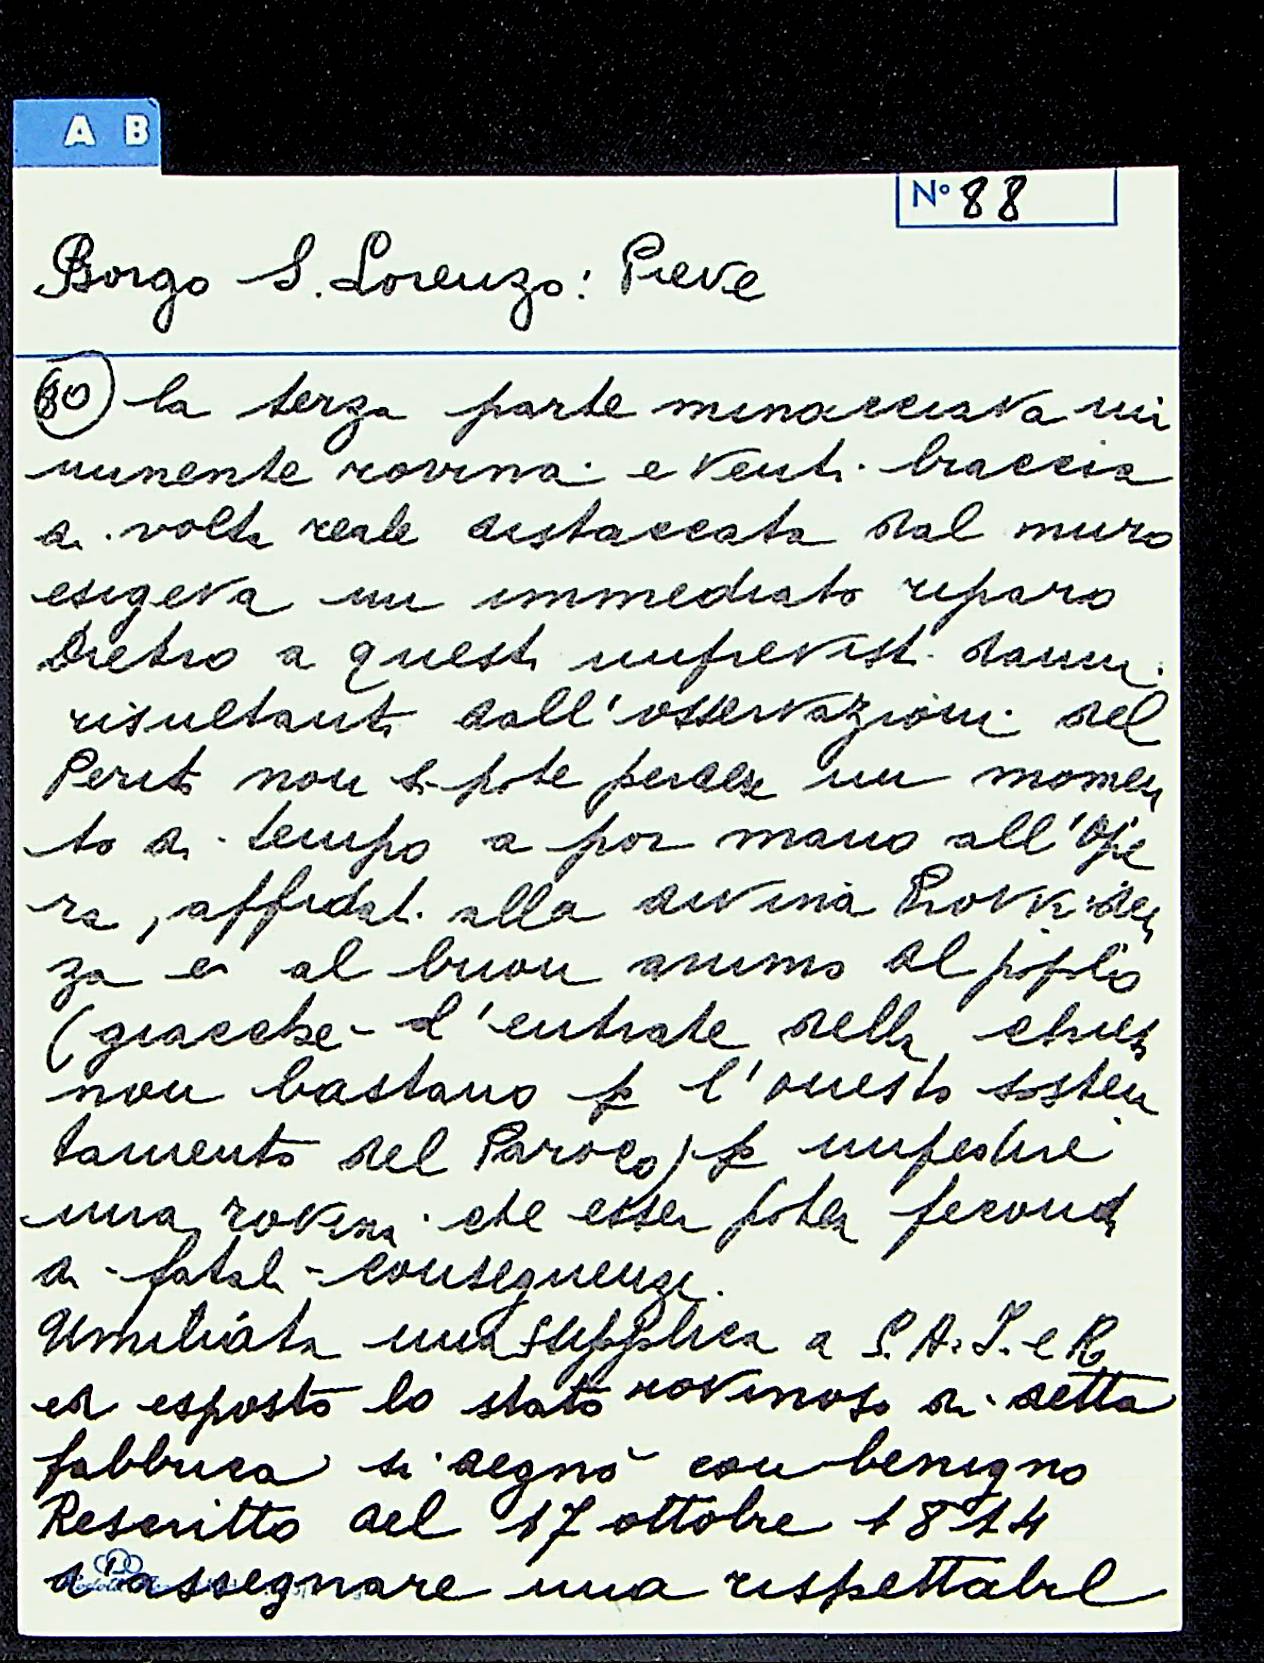 A B
N° 88
Borgo S. Lorenzo: Pieve
(80) la terza parte minacciava im
minente rovina e venti braccia
di volta reale distaccata dal muro
esigeva un immediato riparo
Dietro a questi imprevisti danni
risultanti dall'osservazioni del
Perito non si pote perdere un momen
to di tempo a por mano all'Ope
ra, affidati alla divina Provviden
za e al buon animo del popolo
(giacche l'entrate della chiesa
non bastano p l'onesto sosten
tamento del Paroco) p impedire
una rovina che esser potea feconda
di fatali conseguenze.
Umiliata una supplica a S.A.I. e R
ed esposto lo stato rovinoso di detta
fabbrica si degnò con benigno
Rescritto del 17 ottobre 1814
di assegnare una rispettabil